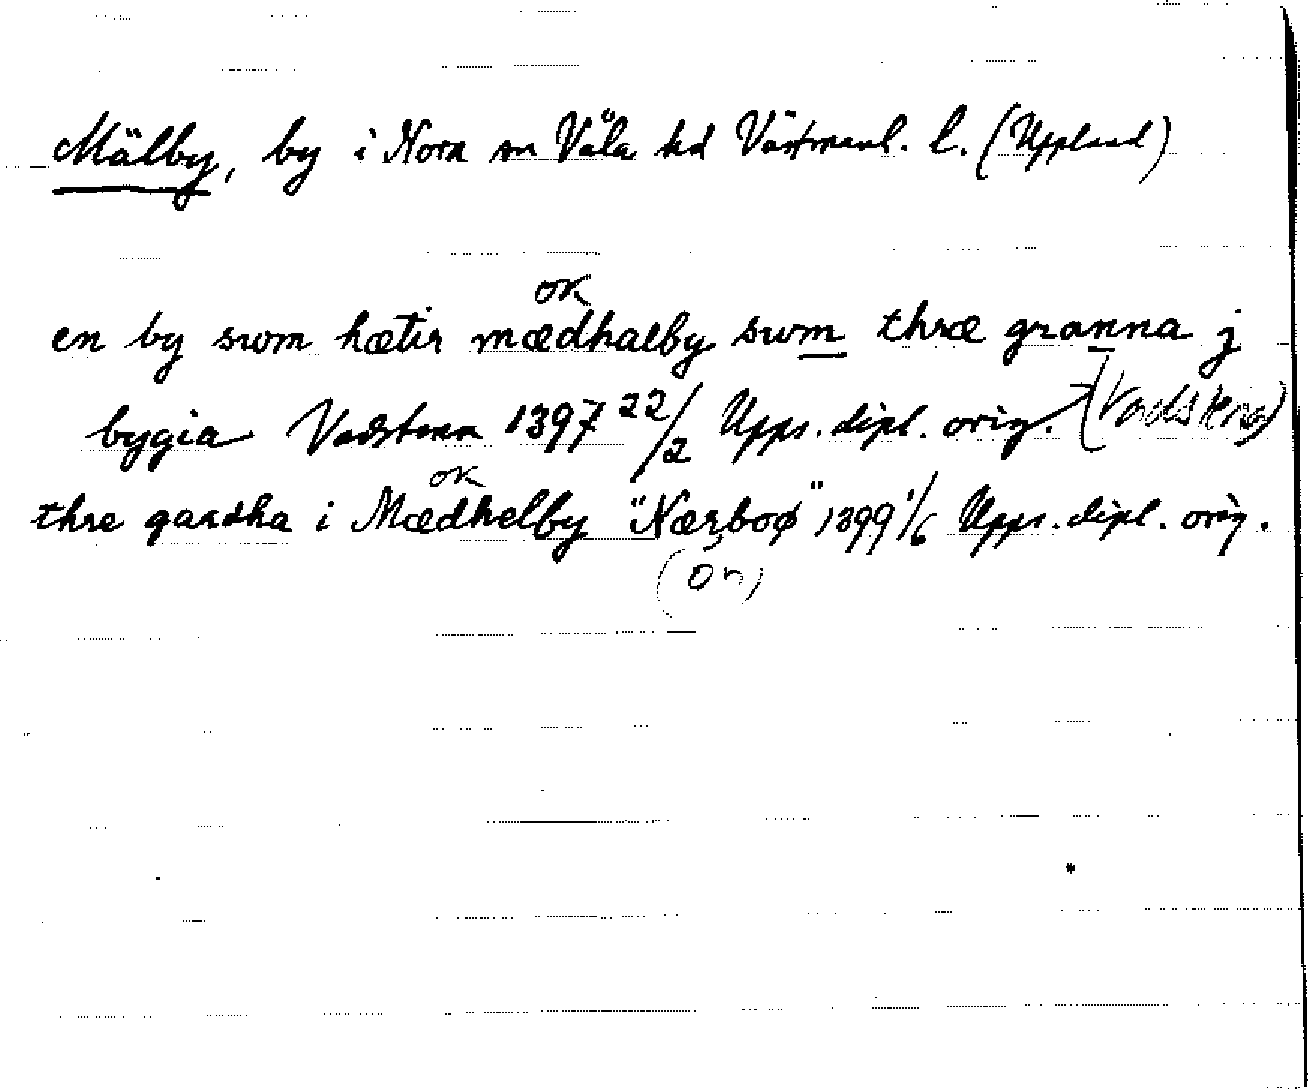 Mälby, by i Nora sn Våla hd Västmanl. l. (Uppland)
ok
en by swm hætir mædhalby swm thræ granna j
bygia Vadstena 1397 22/2 Upps. dipl. orig. (Vadstena)
ok
thre gardha i Mædhelby "Nærboø" 1399 1/6 Upps. dipl. orig.
(Ön)